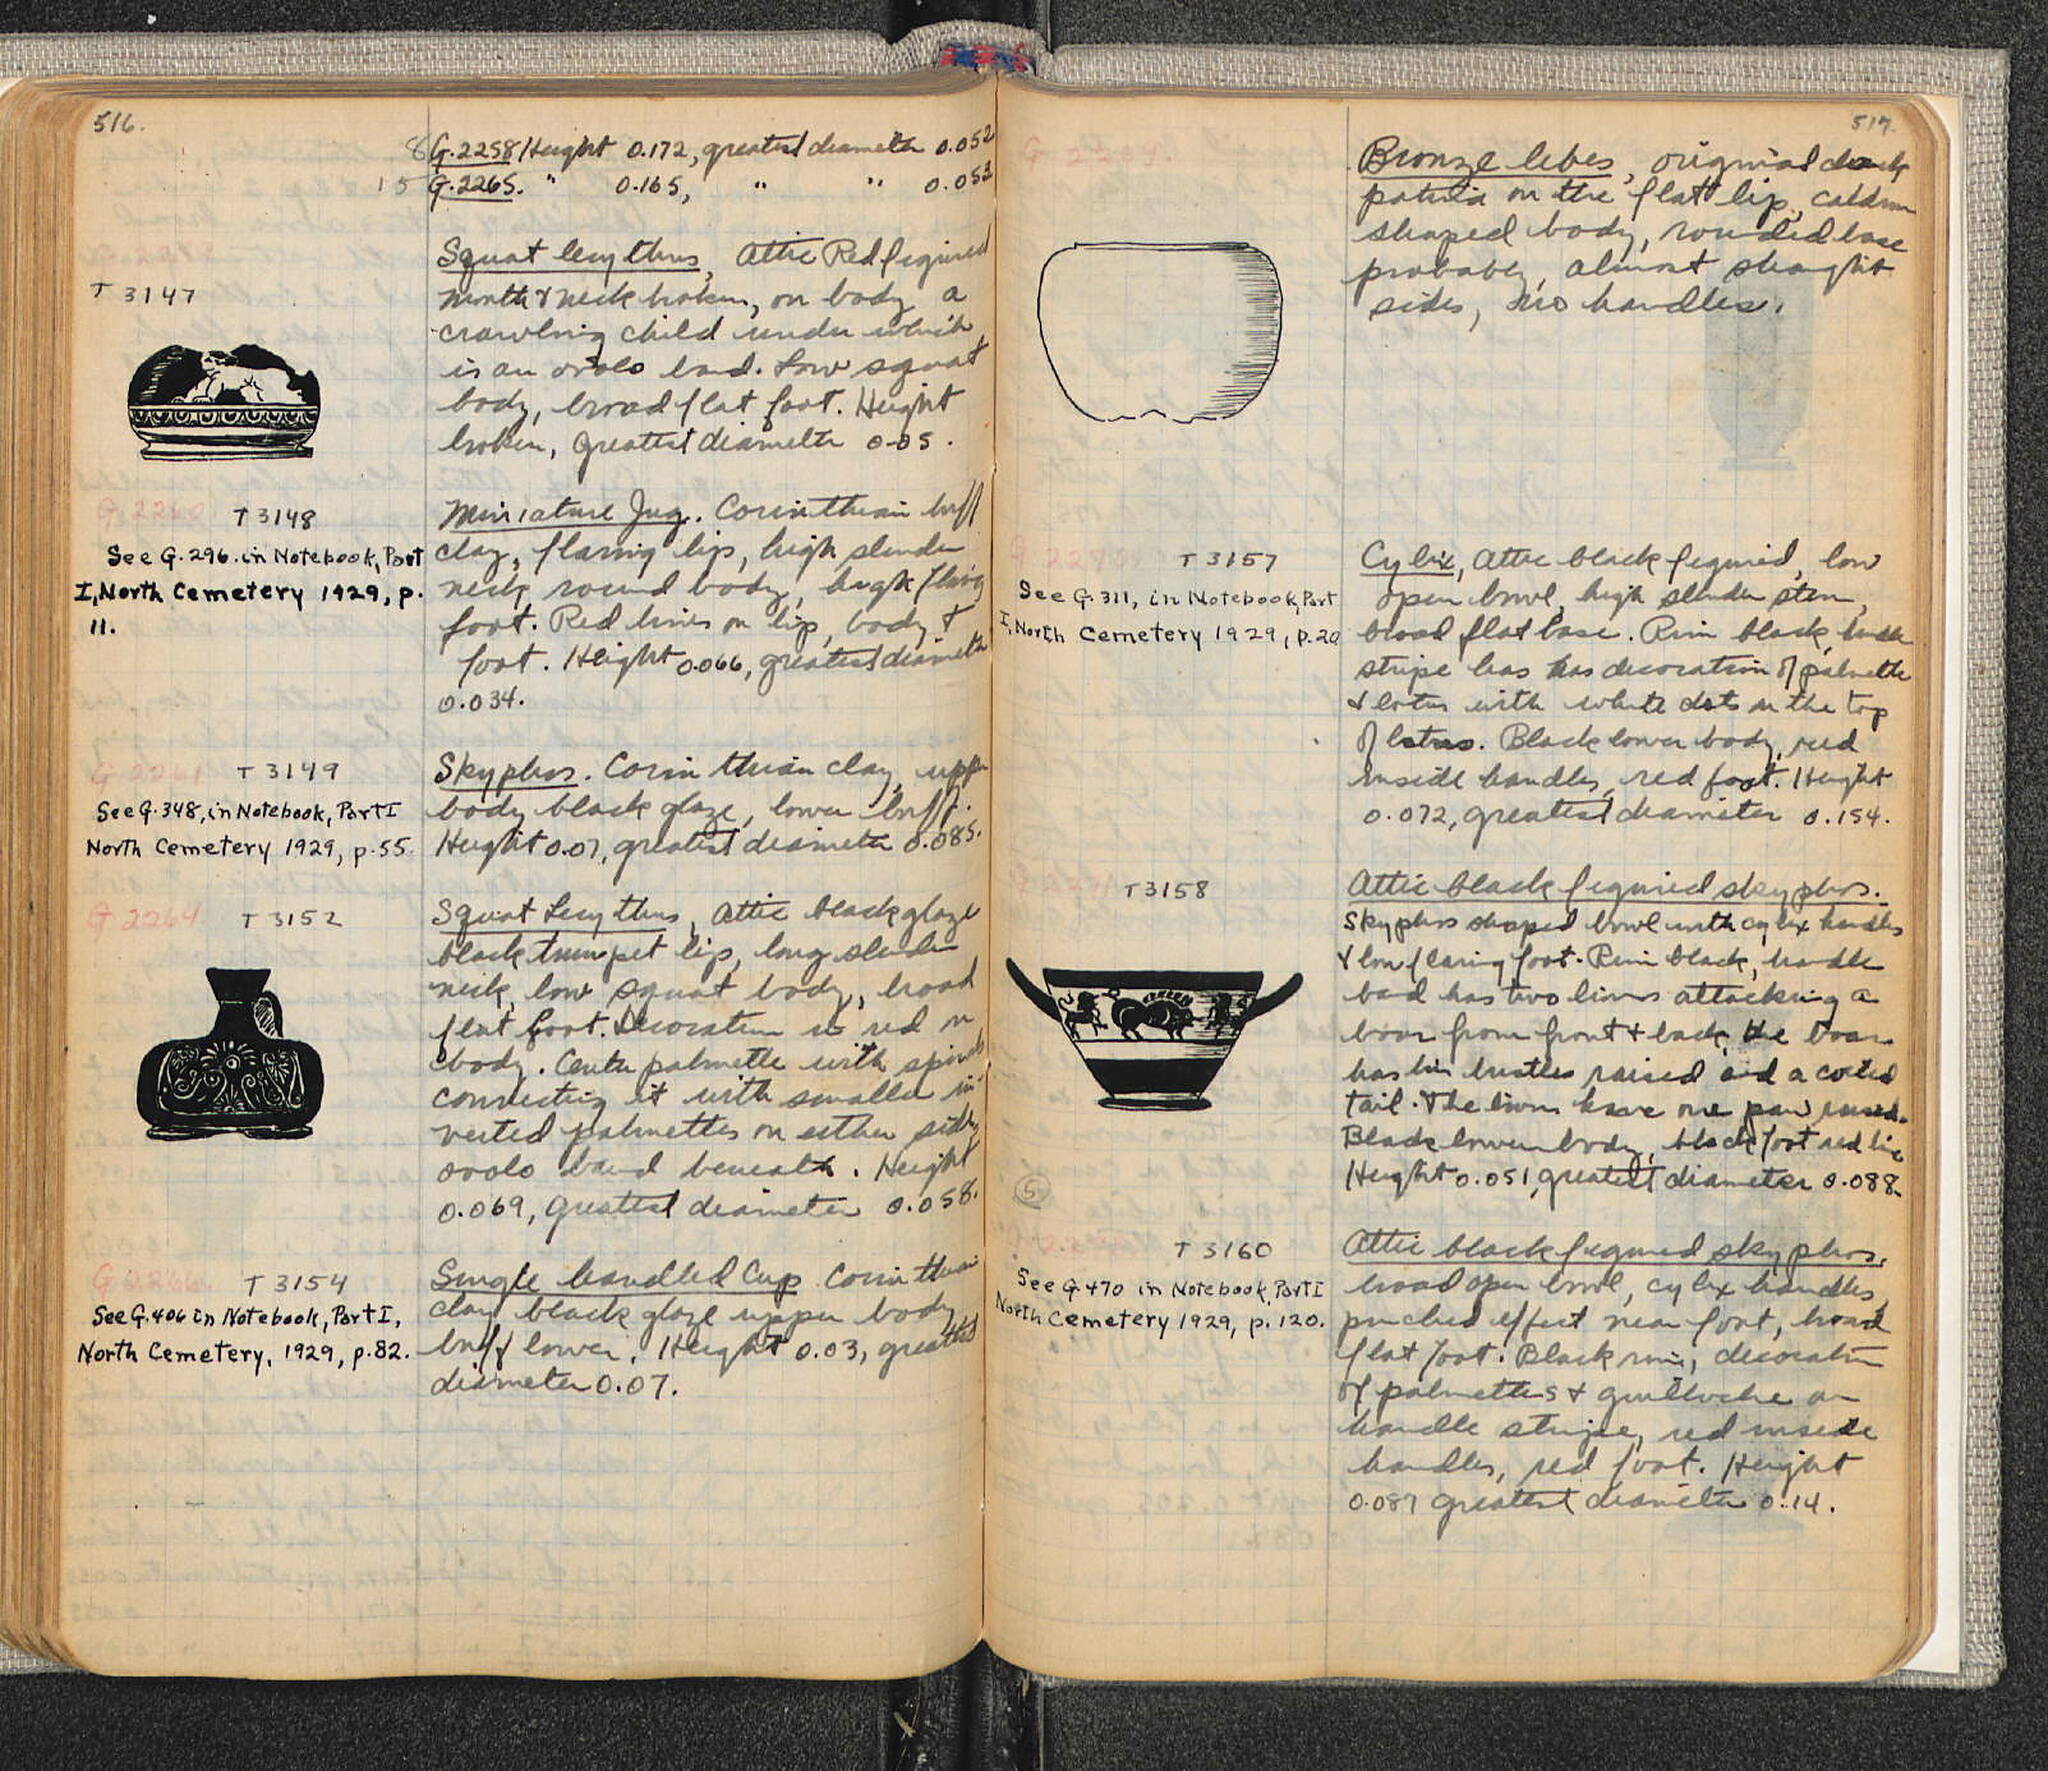 516.
8 G.2258 Height 0.172, greatest diameter 0.052
15 G.2265. " 0.165, " " 0.053
T 3147
Squat lecythus, Attic Red figured
mouth & neck broken, on body a
crawling child under which
is an ovolo band. Low squat
body, broad flat foot. Height
broken, greatest diameter 0.05.
G 2260 T 3148
See G.296. in Notebook, Part
I, North Cemetery 1929, p.
11.
Miniature Jug. Corinthian buff
clay, flaring lip, high slender
neck round body, high flaring
foot. Red lines on lip, body &
foot. Height 0.066, greatest diameter
0.034.
G 2261 T 3149
See G.348, in Notebook, Part I
North Cemetery 1929, p.55.
Skyphos. Corinthian clay, upper
body black glaze, lower buff.
Height 0.07, greatest diameter 0.085.
G 2264 T 3152
Squat Lecythus, Attic black glaze
black trumpet lip, long slender
neck, low squat body, broad
flat foot. Decoration in red on
body. Center palmette with spirals
connecting it with smaller in-
verted palmettes on either side,
ovolo band beneath. Height
0.069, greatest diameter 0.058.
G 2266 T 3154
See G.406 in Notebook, Part I,
North Cemetery, 1929, p.82.
Single handled Cup. Corinthian
clay black glaze upper body
buff lower. Height 0.03, greatest
diameter 0.07.
517.
Bronze lebes, original dark
patina on the flat lip, caldron
shaped body, rounded base
probably, almost straight
sides, no handles.
T 3157
See G.311, in Notebook, Part
I, North Cemetery 1929, p.20
Cylix, Attic black figured, low
open bowl, high slender stem,
broad flat base. Rim black, handle
stripe has has decoration of palmette
& lotus with white dots on the top
of lotus. Black lower body, red
inside handles, red foot. Height
0.072, greatest diameter 0.154.
T 3158
Attic black figured skyphos.
Skyphos shaped bowl with cylix handles
& low flaring foot. Rim black, handle
band has two lions attacking a
boar from front & back, the boar
has his bristles raised and a coiled
tail. The lions have one paw raised.
Black lower body, black foot red line
Height 0.051, greatest diameter 0.088.
5
T 3160
See G.470 in Notebook, Part I
North Cemetery 1929, p.120.
Attic black figured skyphos,
broad open bowl, cylix handles,
pinched effect near foot, broad
flat foot. Black rim, decoration
of palmettes & guilloche on
handle stripe, red inside
handles, red foot. Height
0.087 greatest diameter 0.14.